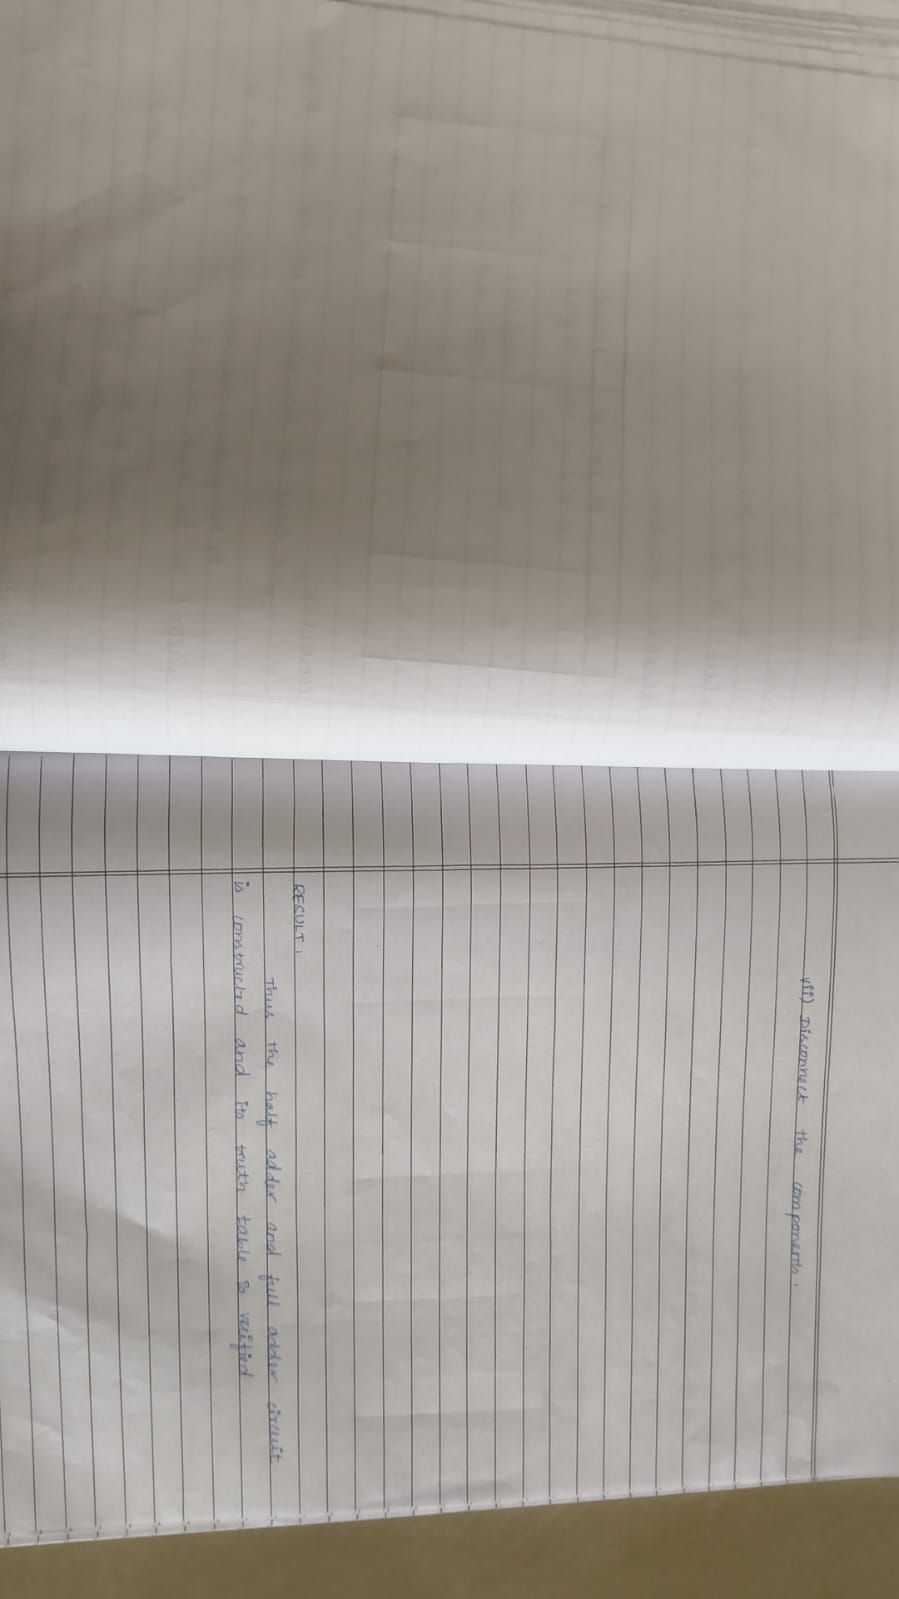 vii) Disconnect the components.
RESULT:
Thus the half adder and full adder circuit
is constructed and its truth table is verified